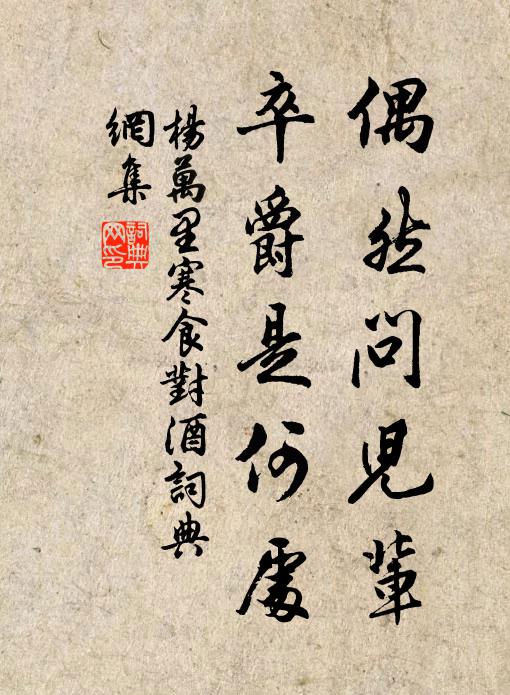 偶然問児輩
卒爵是何處
楊萬里寒食對酒詞典
網集
詞典
网印